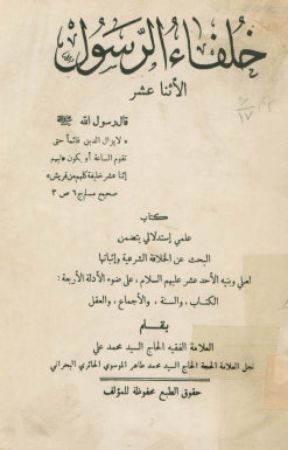 خلفاء الرسول
الأثنا عشر
قال رسول الله ﷺ
« لا يزال الدين قائماً حتى
تقوم الساعة أو يكون عليهم
إثنا عشر خليفة كلهم من قريش »
صحيح مسلم ج ٦ ص ٣
كتاب
علمي إستدلالي يتضمن
البحث عن الخلافة الشرعية وإثباتها
لعلي وبنيه الأحد عشر عليهم السلام ، على ضوء الأدلة الأربعة :
الكتاب ، والسنة ، والأجماع ، والعقل
بقلم
العلامة الفقيه الحاج السيد محمد علي
نجل العلامة الحجة الحاج السيد محمد طاهر الموسوي الحائري البحراني
حقوق الطبع محفوظة للمؤلف